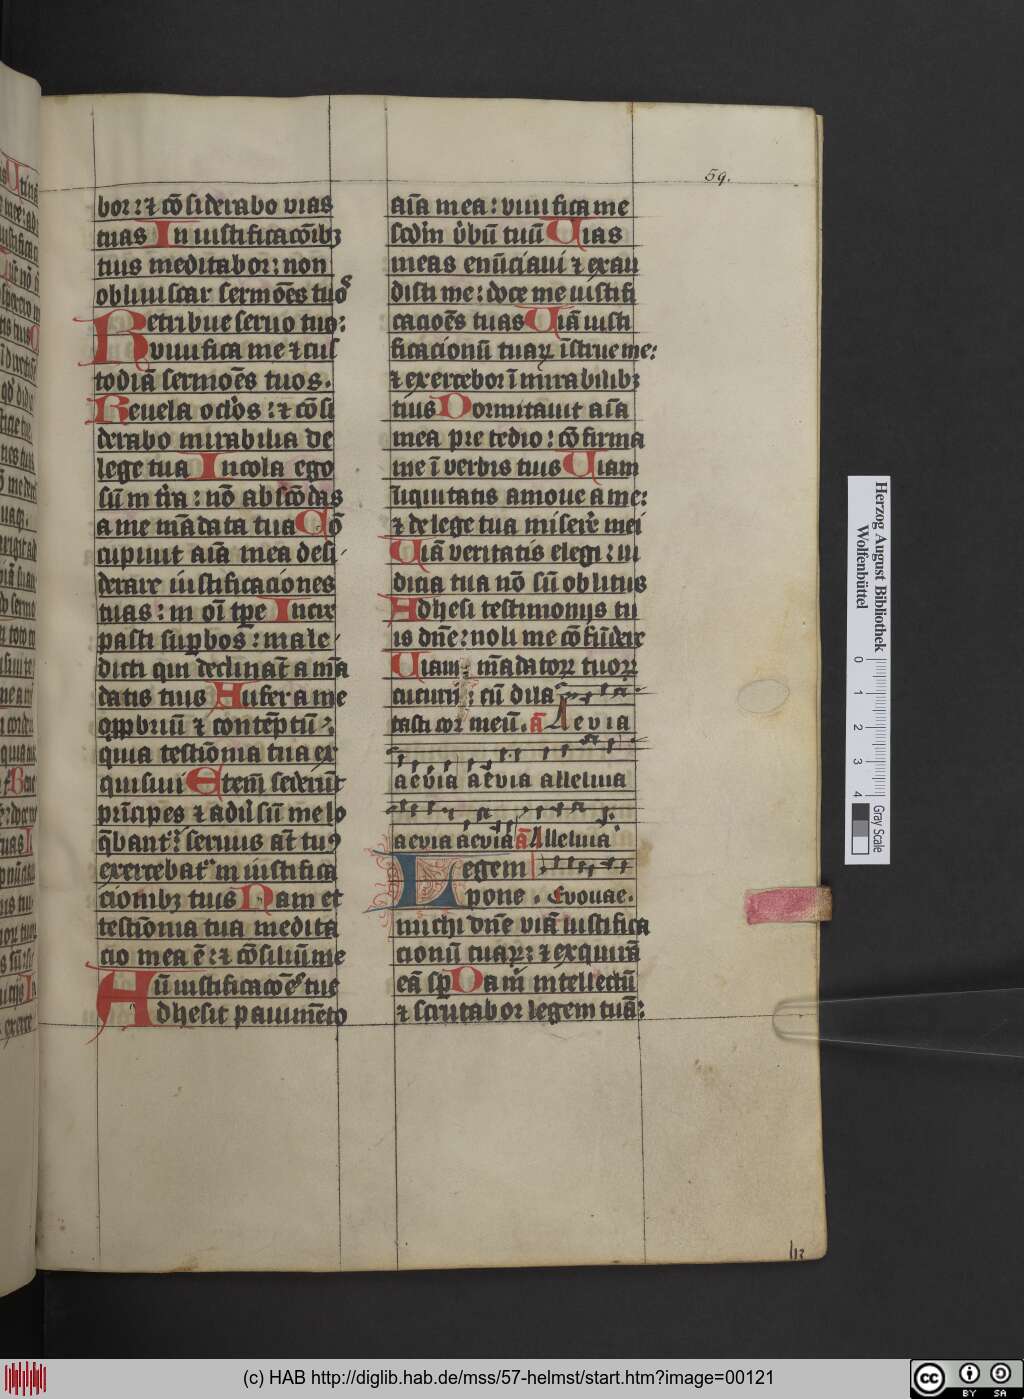 59.
bor: ⁊ cōsiderabo vias
tuas In iustificacōibꝫ
tuis meditabor: non
obliuiscar sermōes tuos
Retribue seruo tuo:
viuifica me ⁊ cus
todiā sermōes tuos.
Reuela oclōs: ⁊ cōsi
derabo mirabilia de
lege tua Incola ego
sū in tr̄a: nō abscōdas
a me mādata tua Cō
cupiuit aīa mea desi
derare iustificaciones
tuas: in oī tp̄e Incre
pasti supbos: male
dicti qui declināt a mā
datis tuis Aufer a me
opp̄briū ⁊ contēptū:
quia testīonia tua ex
quisiui Etem̄ sederūt
pri̅cipes ⁊ adūsū me lo
q̄bant᷑: seruus at̄ tuꝰ
exercebat᷑ in iustifica
cionibꝫ tuis Nam et
testīonia tua medita
cio mea ē: ⁊ cōsiliū me
Aū iustificacōēs tue
Adhesit pauimēto
aīa mea: viuifica me
scd̄m v̄bū tuū Uias
meas enūciaui ⁊ exau
disti me: doce me iustifi
cacioēs tuas Uiā iusti
ficacionū tuaꝝ īstrue me:
⁊ exercebor ī mirabilibꝫ
tuis Dormitauit aīa
mea pre tedio: cōfirma
me ī verbis tuis Uiam
īiquitatis amoue a me:
⁊ de lege tua miserēr mei
Uiā veritatis elegi: iu
dicia tua nō sū oblitus
Adhesi testimonijs tu
is dn̄e: noli me cōfūdere
Uiam mādatorꝝ tuorꝝ
cucurri: cū dila
tasti cor meū. an̄ Aevia
aevia aevia alleluia
aevia aevia an̄ Alleluia
Legem
pone. Evovae.
michi dn̄e viā iustifica
cionū tuaꝝ: ⁊ exquirā
eā sp̄ Da m̄ intellectū
⁊ scrutabor legem tuā:
Herzog August Bibliothek
Wolfenbüttel
0 1 2 3 4
Gray Scale
(c) HAB http://diglib.hab.de/mss/57-helmst/start.htm?image=00121
cc BY SA